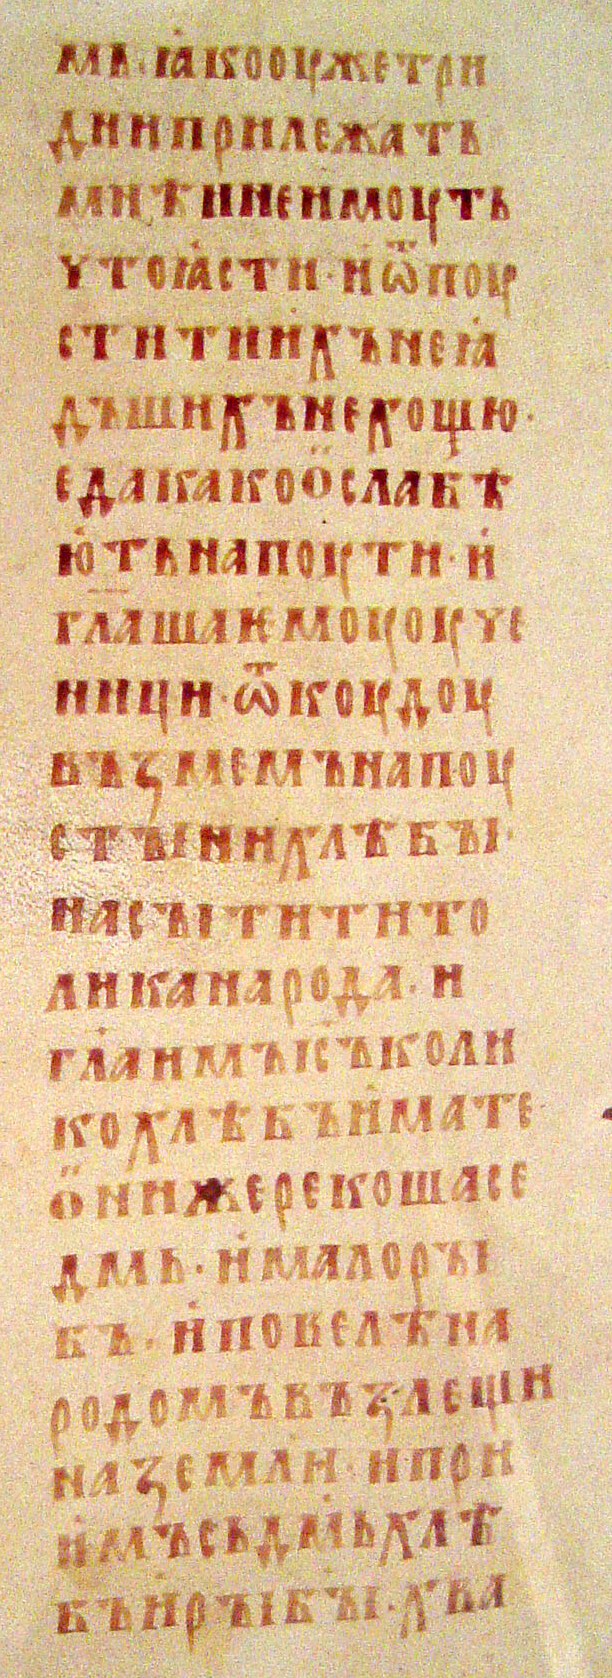 мь·ꙗкооужетри
днинприлежать
мнѣинеимоуть
чтоꙗсти·иѿпоу
ститиихънеꙗ
дъшихънехощю·
едакакоославѣ
ютьнапоути·и
глашаѥмоуоуче
ници·ѿкоудоу
възмемънапоу
стыниихлѣбы·
насытититито
ликанарода·и
глаимъісъколи
кохлѣбъимате·
онижерекошасе
дмь·ималоры
бъ·иповелѣна
родомъвъзлещи
наземли·ипри
имъсьдмьхлѣ
бъирыбы·хва